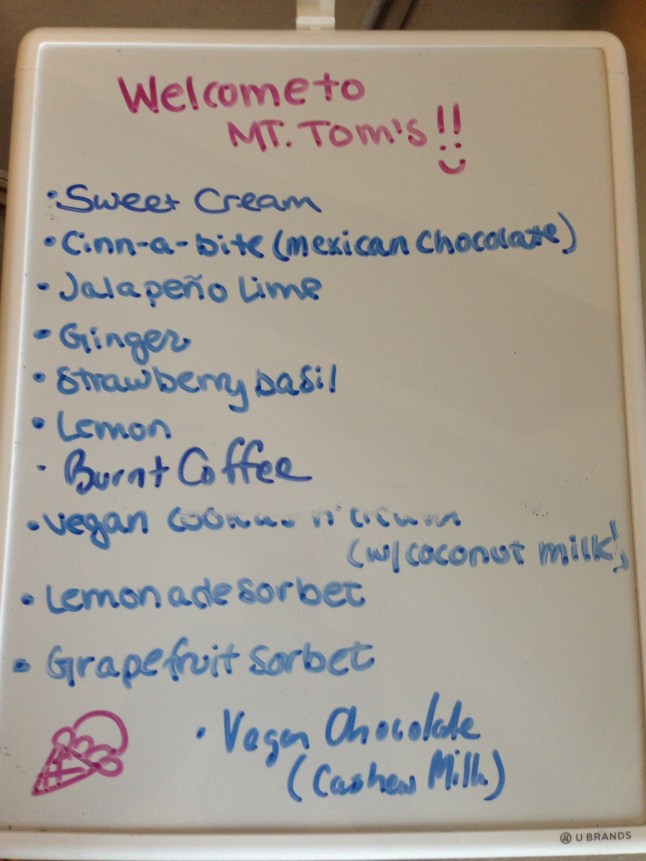 Welcome to
MT. Tom's!!
• Sweet Cream
• Cinn-a-bite (mexican chocolate)
• Jalapeño Lime
• Ginger
• Strawberry basil
• Lemon
• Burnt Coffee
• vegan cookies n' cream
(w/coconut milk)
• Lemonade sorbet
• Grapefruit sorbet
• Vegan Chocolate
(Cashew Milk)
U BRANDS